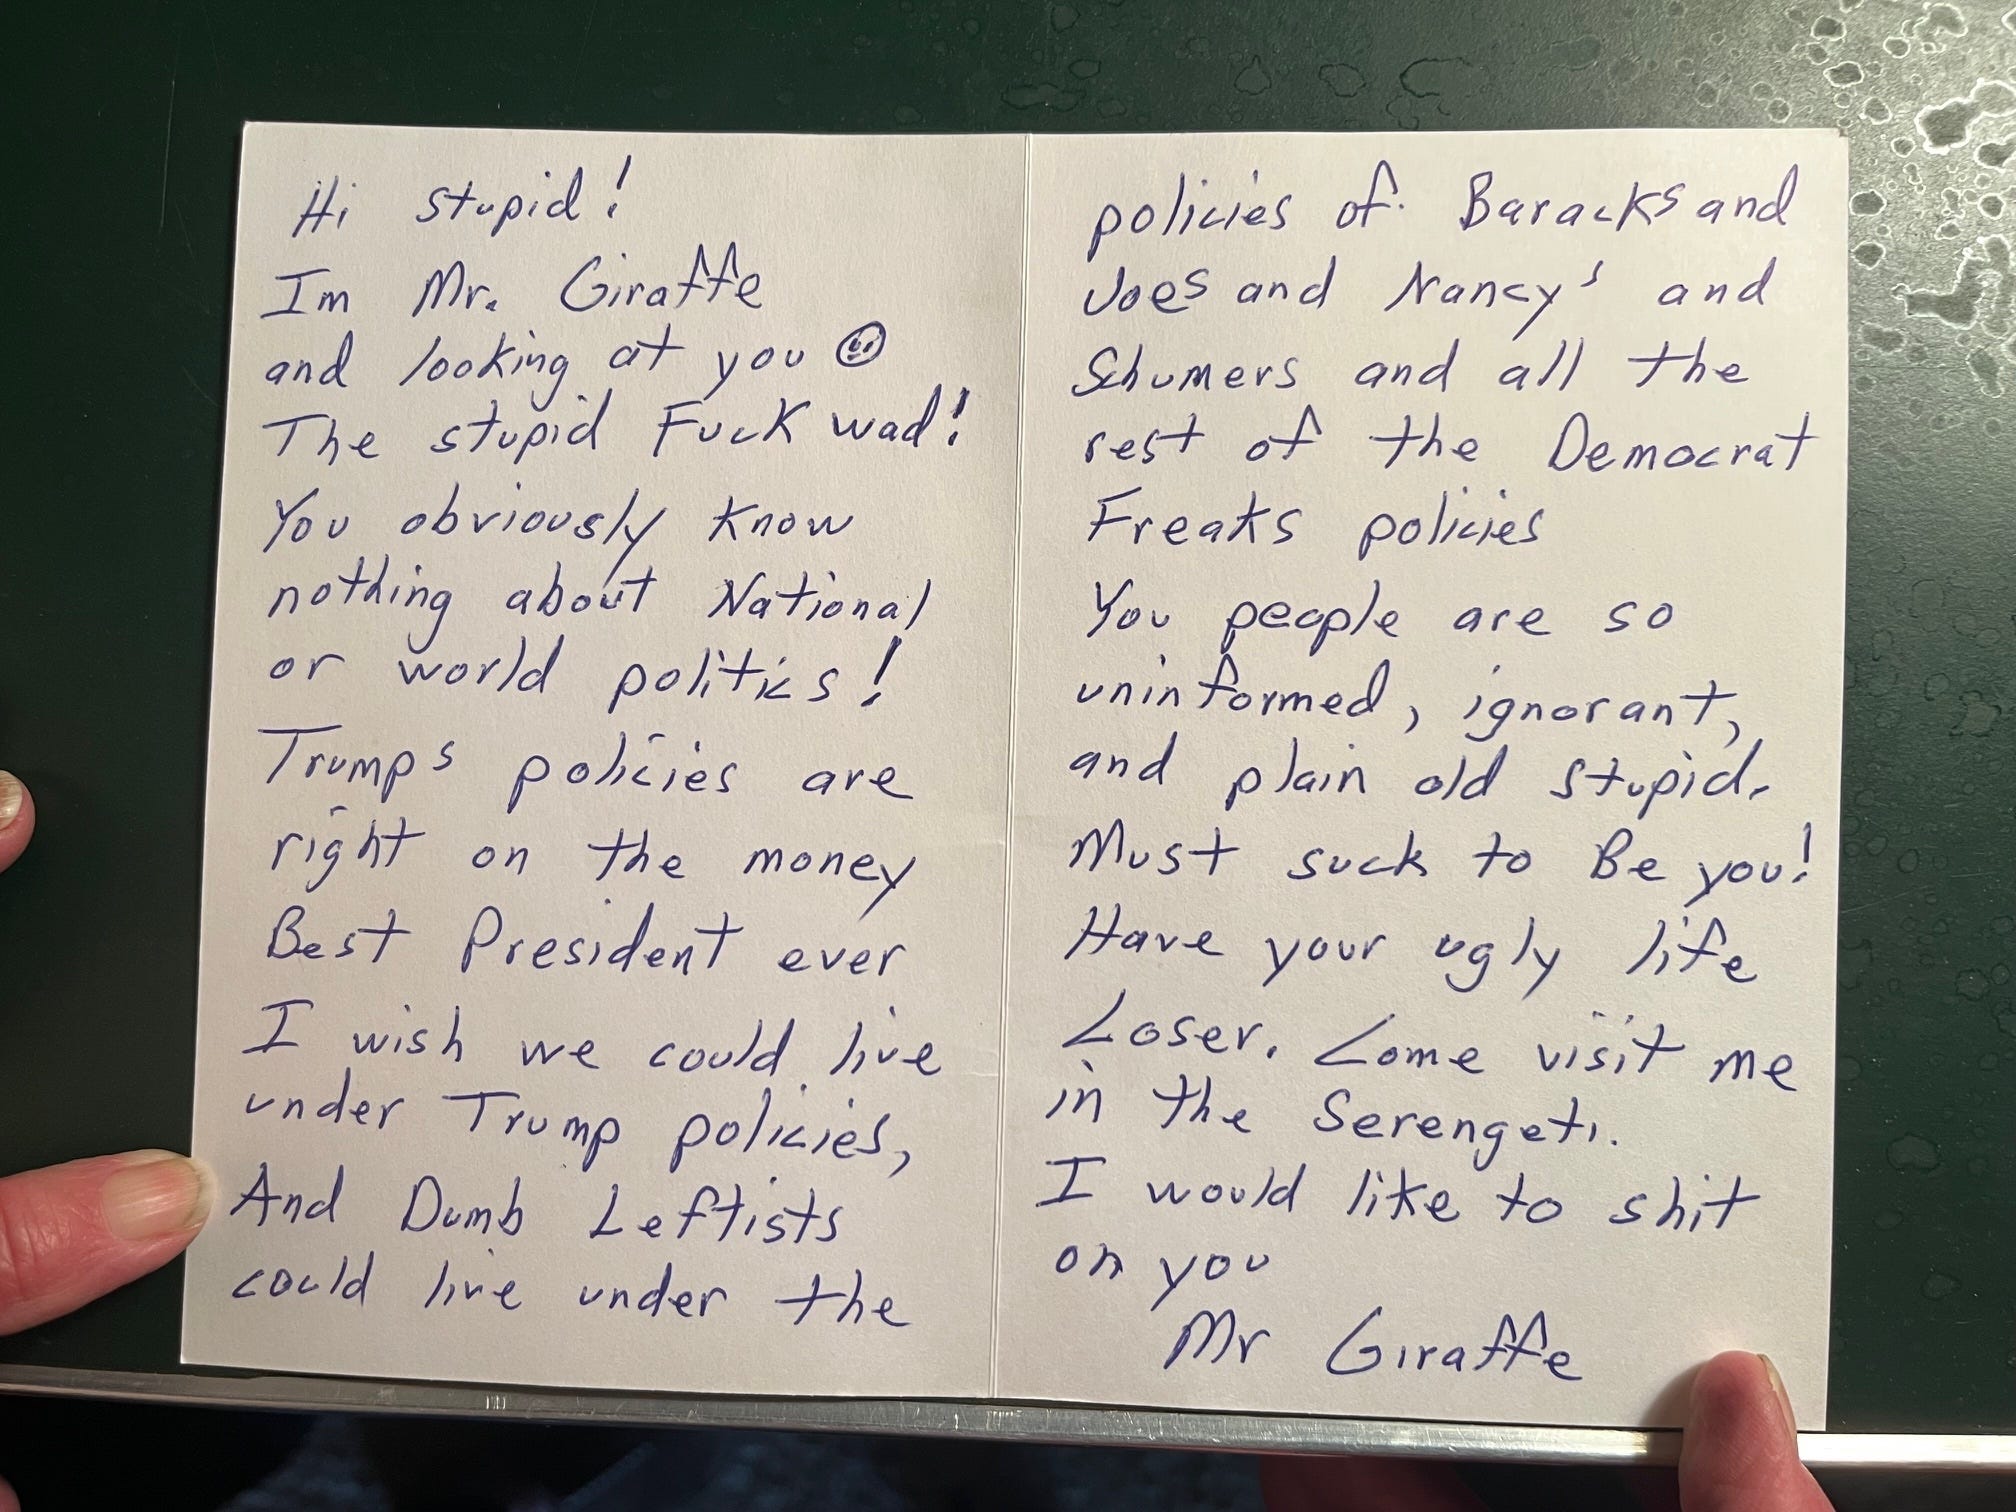 Hi stupid!
Im Mr. Giraffe
and looking at you ☺
The stupid Fuck wad!
You obviously know
nothing about National
or world politics!
Trumps policies are
right on the money
Best President ever
I wish we could live
under Trump policies,
And Dumb Leftists
could live under the
policies of Baracks and
Joes and Nancy's and
Schumers and all the
rest of the Democrat
Freaks policies
You people are so
uninformed, ignorant,
and plain old stupid.
Must suck to Be you!
Have your ugly life
Loser. Come visit me
in the Serengeti.
I would like to shit
on you
Mr Giraffe